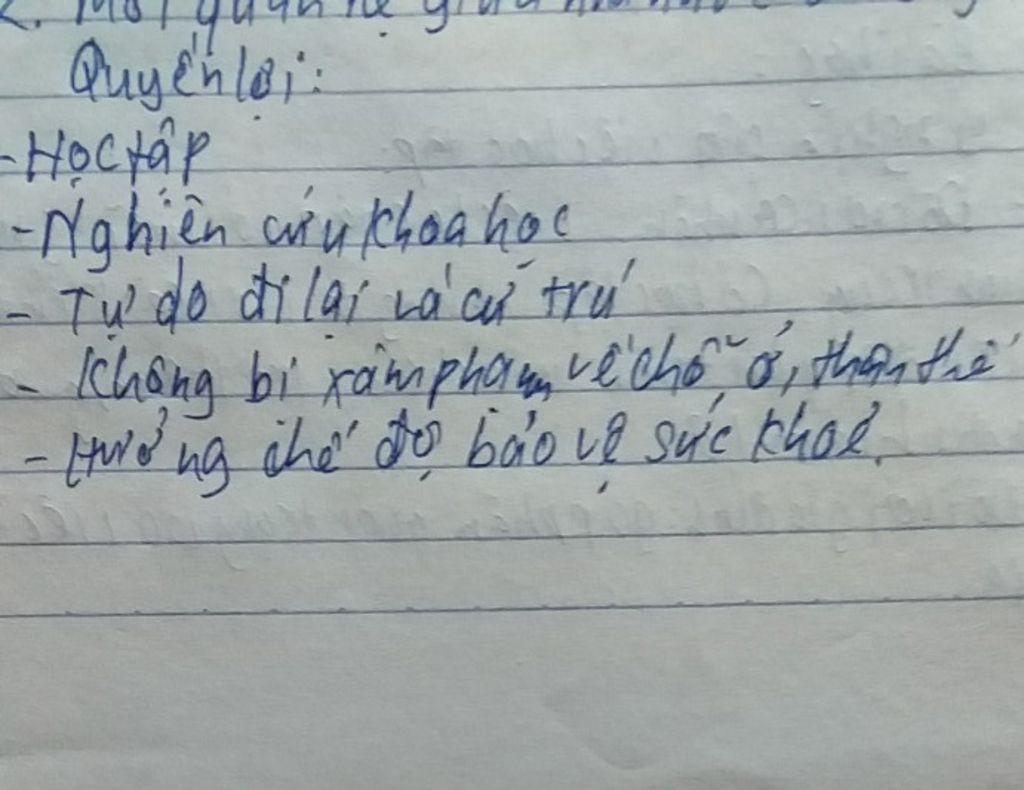 2. Mối quan hệ giữa
Quyền lợi:
-Học tập
-Nghiên cứu khoa học
- Tự do đi lại và cư trú
- Không bị xâm phạm về chỗ ở, thân thể
- Hưởng chế độ bảo vệ sức khoẻ.